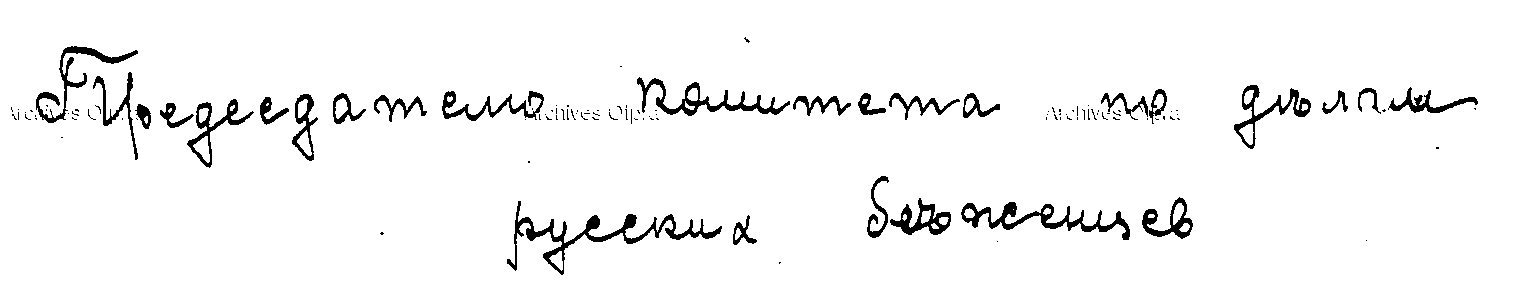 Председателю комитета по дѣлам
русских бѣженцев
Archives Ofpra Archives Ofpra Archives Ofpra